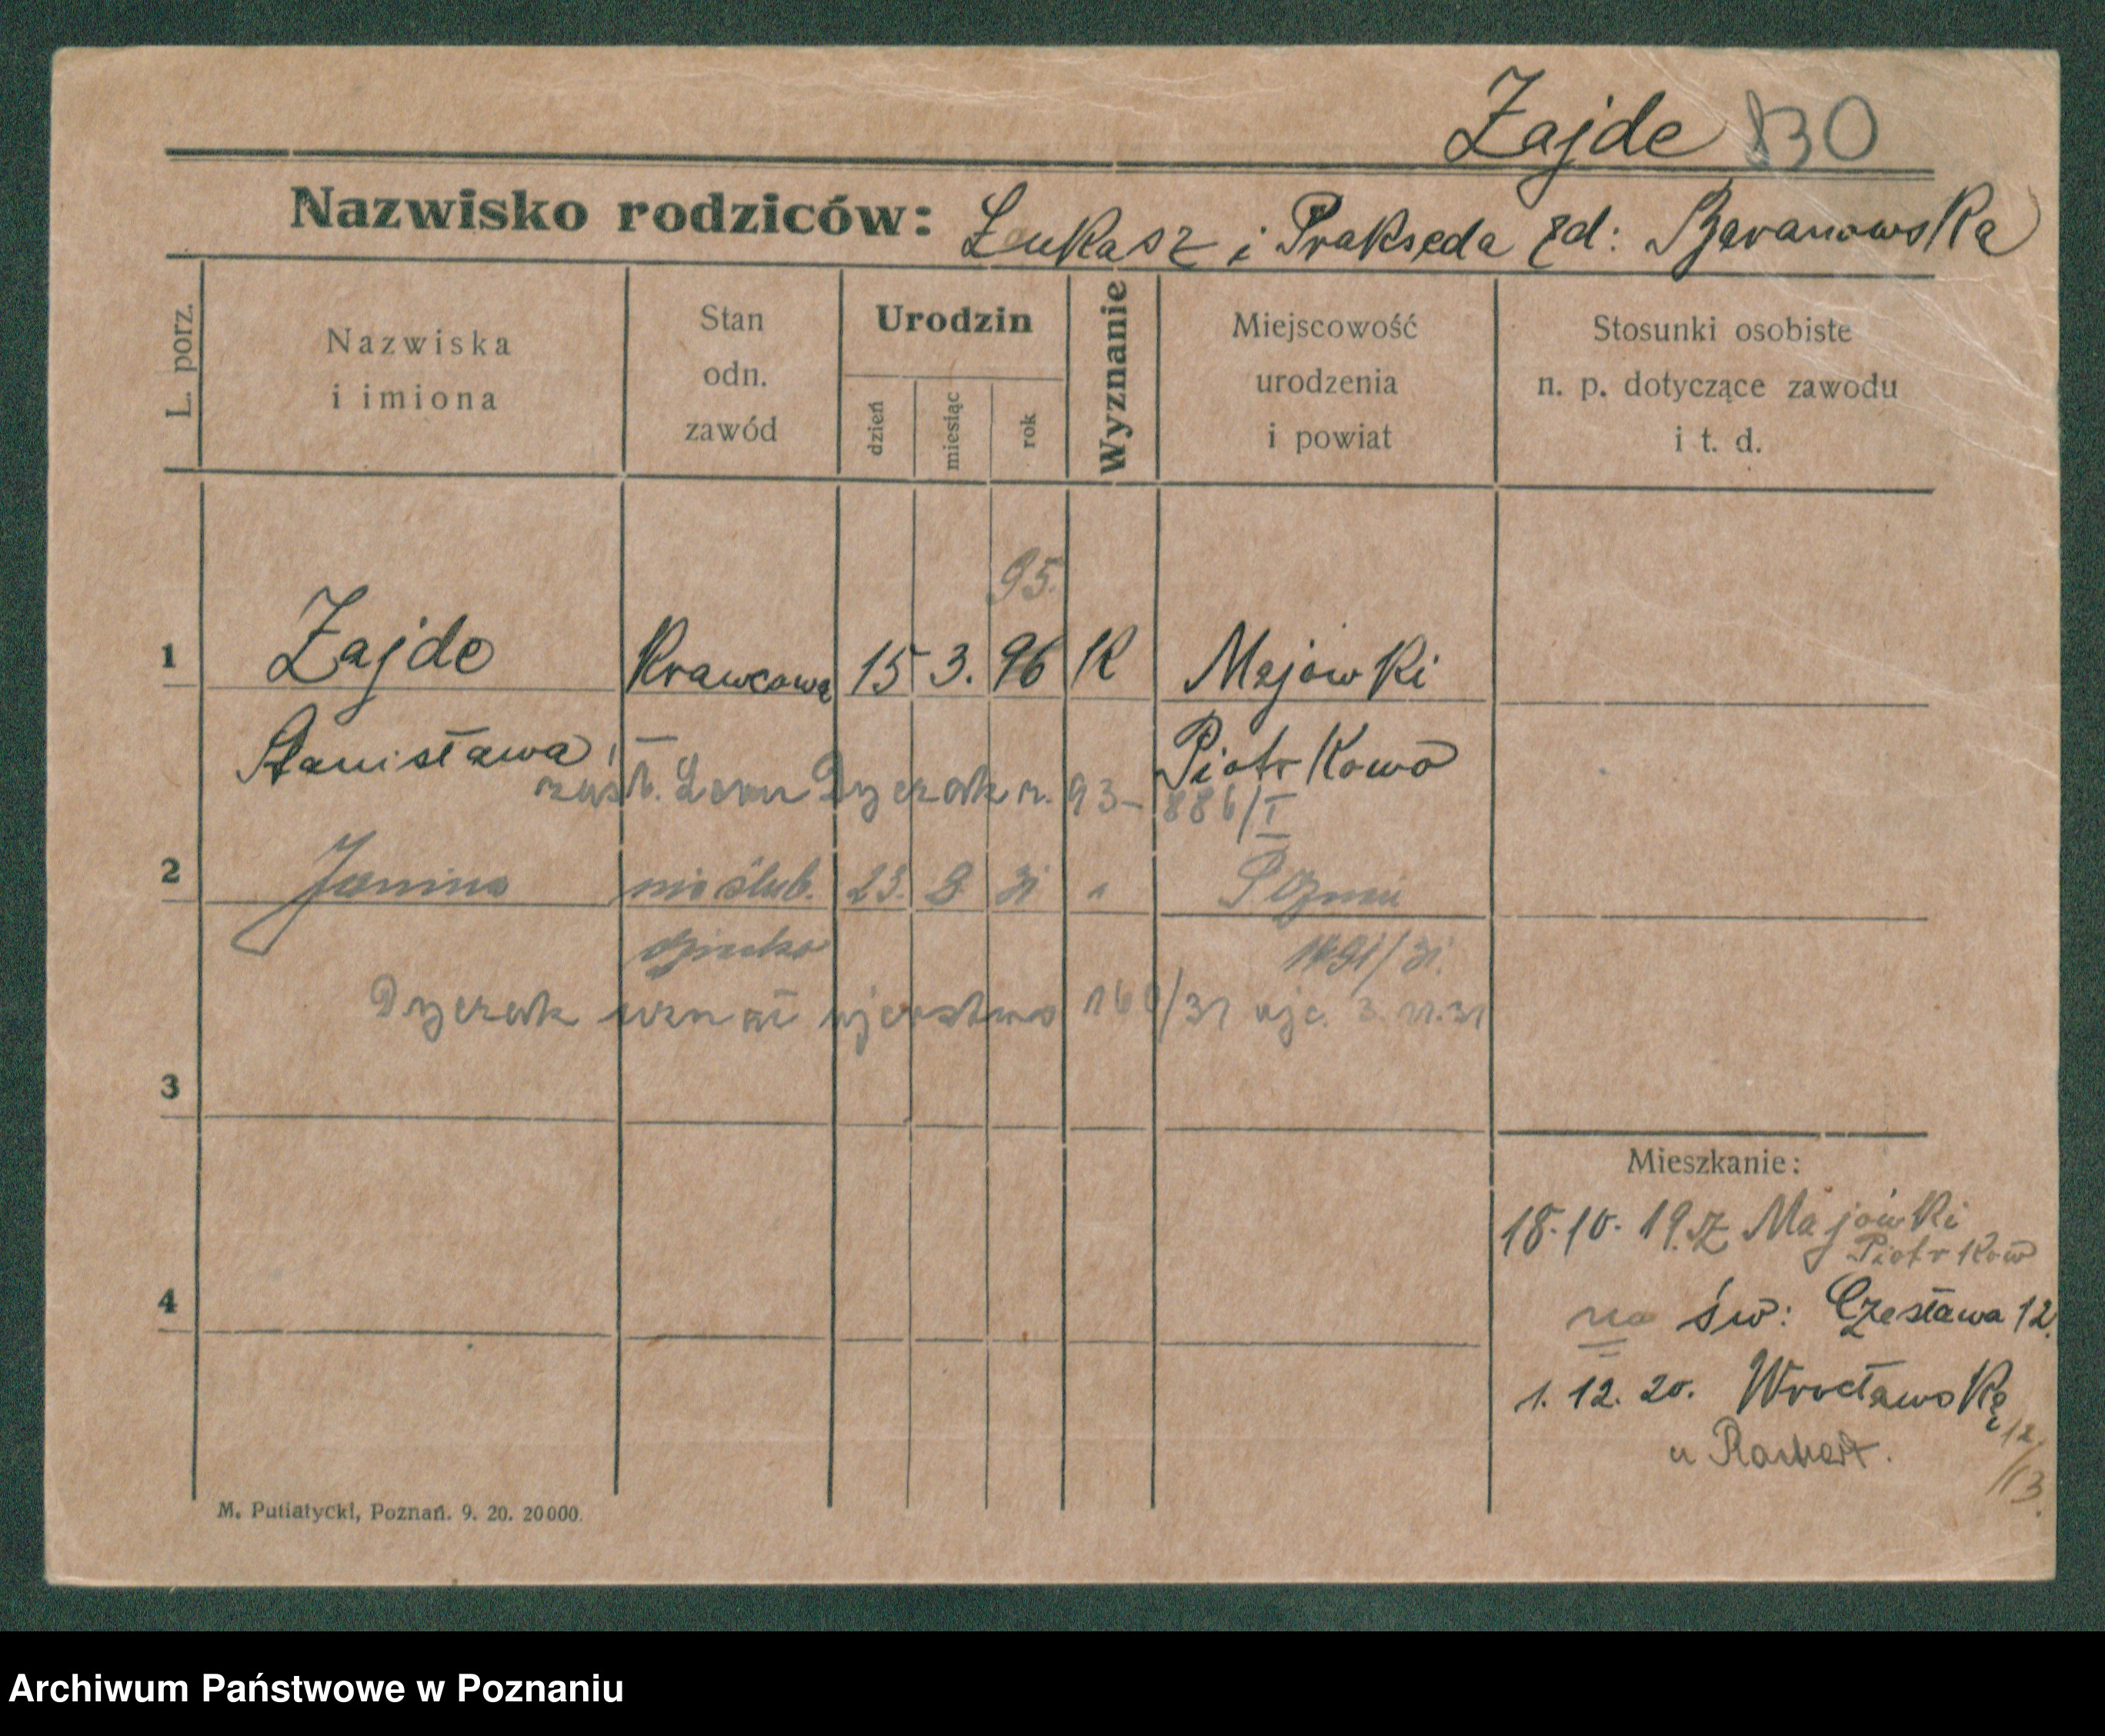 Zajde 830
Nazwisko rodziców: Łukasz i Prakseda zd: Baranowska
L. porz.
Nazwiska
i imiona
Stan
odn.
zawód
Urodzin
dzień
miesiąc
rok
Wyznanie
Miejscowość
urodzenia
i powiat
Stosunki osobiste
n. p. dotyczące zawodu
i t. d.
95.
1 Zajde Krawcowa 15 3. 96 K Majówki
Stanisława Piotrkowo
Leon Dyczak r. 93 - 886/I
2 Janina nieślub. 23. 31 "
dziecko 1491/31.
Dyczak uznał ojcostwo 160/31 ojc. 3. 11.31
3
4
Mieszkanie:
18.10.19. z Majówki
Piotrków
na św: Czesława 12.
1. 12. 20. Wrocławską
12/13.
u
M. Putiatycki, Poznań. 9. 20. 20000.
Archiwum Państwowe w Poznaniu